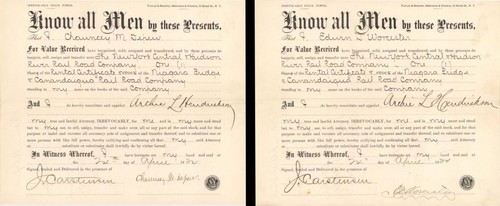 Know all Men by these Presents,
That I, Chauncey M Depew
For Value Received have bargained, sold, assigned and transferred, and by these presents do
bargain, sell, assign and transfer unto The New York Central & Hudson
River Rail Road Company One (1)
Share of the Rental Certificate Stock of the Niagara Bridge
& Canandaigua Rail Road Company
standing in my name on the books of the said
Company
And I do hereby constitute and appoint Archie L Hendrickson
my true and lawful Attorney, IRREVOCABLY, for me and in my name and stead
but to my use, to sell, assign, transfer and make over, all or any part of the said stock, and for that
purpose to make and execute all necessary acts of assignment and transfer thereof, and to substitute one or
more persons with like full power, hereby ratifying and confirming all that my said Attorney
or substitute or substitutes shall lawfully do by virtue hereof.
In Witness Whereof, I have hereunto set my hand and seal at
the 2d day of April
Signed, Sealed and Delivered in the presence of
J. Carstensen
Chauncey M Depew
Know all Men by these Presents,
That I, Edwin D Worcester
For Value Received have bargained, sold, assigned and transferred, and by these presents do
bargain, sell, assign and transfer unto The New York Central & Hudson
River Rail Road Company One (1)
Share of the Rental Certificate Stock of the Niagara Bridge
& Canandaigua Rail Road Company
standing in my name on the books of the said
Company
And I do hereby constitute and appoint Archie L Hendrickson
my true and lawful Attorney, IRREVOCABLY, for me and in my name and stead
but to my use, to sell, assign, transfer and make over, all or any part of the said stock, and for that
purpose to make and execute all necessary acts of assignment and transfer thereof, and to substitute one or
more persons with like full power, hereby ratifying and confirming all that my said Attorney
or substitute or substitutes shall lawfully do by virtue hereof.
In Witness Whereof, I have hereunto set my hand and seal at
the 2d day of April
Signed, Sealed and Delivered in the presence of
J. Carstensen